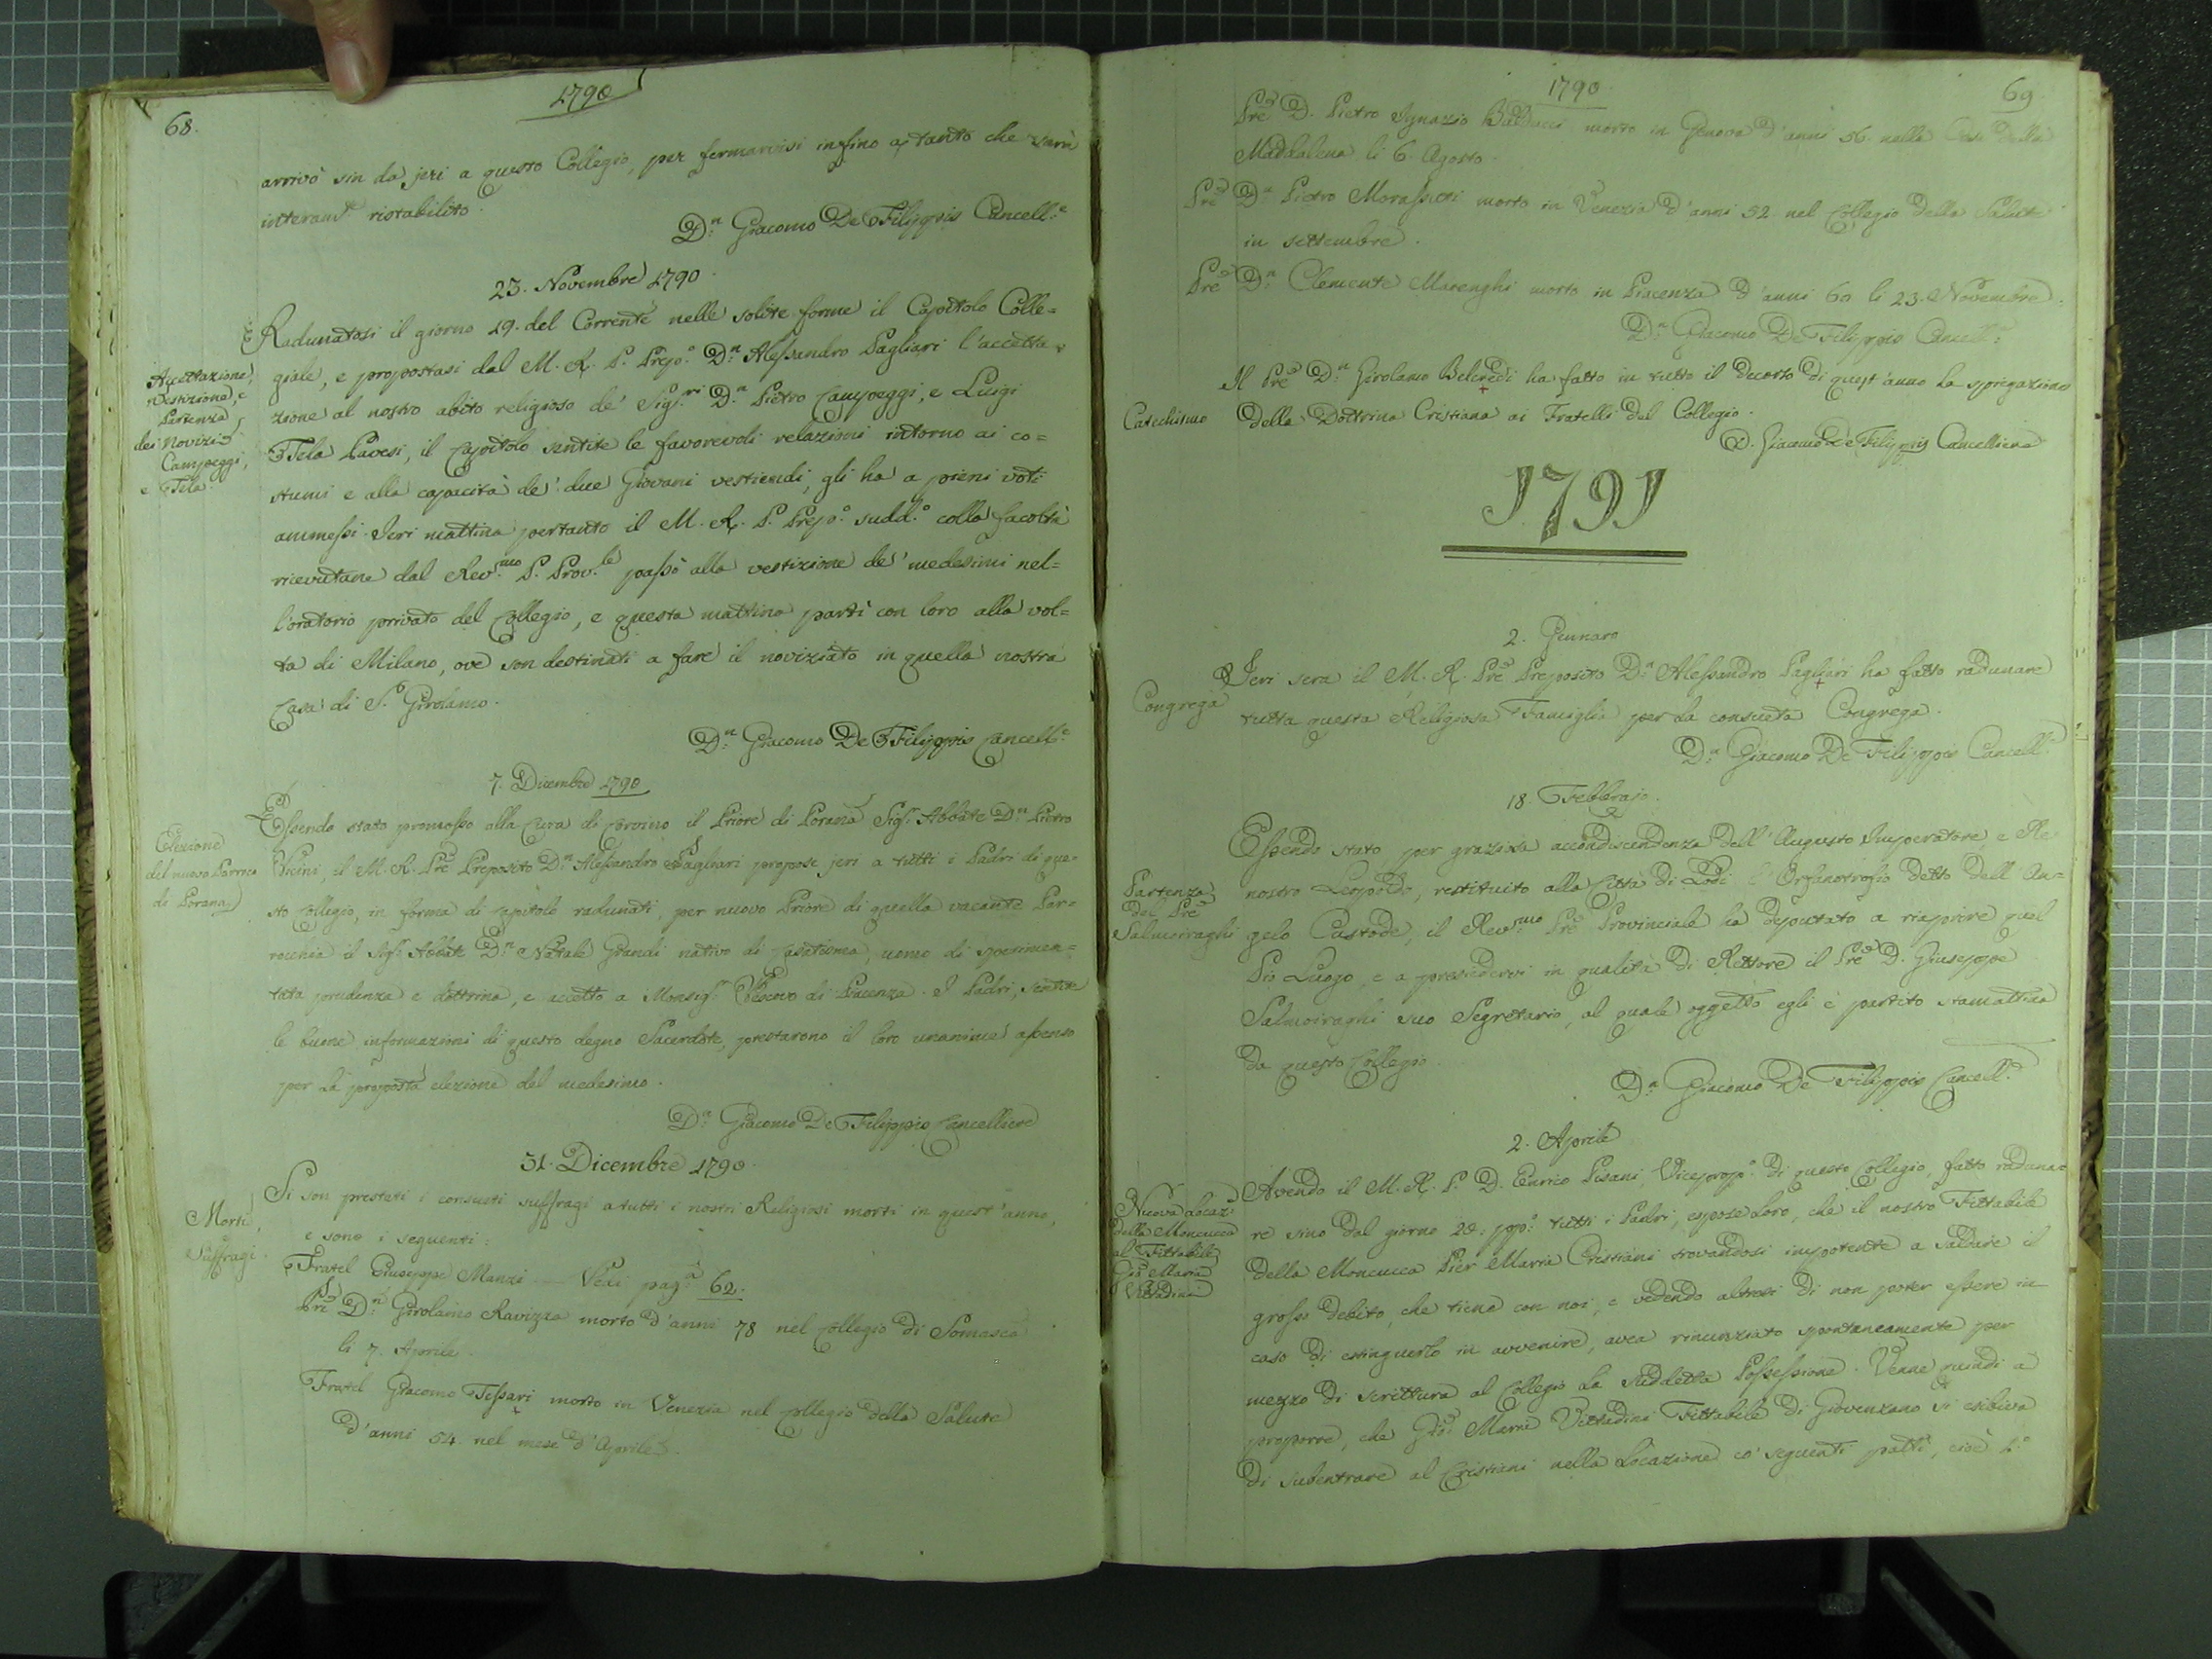 68.
1790
arrivò sin da jeri a questo Collegio, per fermarvisi infino a tanto che sarà
interamte ristabilito.
Dn Giacomo De Filippis Cancelle
23. Novembre 1790
Radunatosi il giorno 19. del Corrente nelle solite forme il Capitolo Colle=
giale, e propostasi dal M. R. P. Prepo. Dn Alessandro Pagliari l'accetta=
zione al nostro abito religioso de' Sigri Dn Pietro Campeggi, e Luigi
Tela Pavesi, il Capitolo sentite le favorevoli relazioni intorno ai co=
stumi e alla capacità de' due Giovani vestiendi, gli ha a pieni voti
ammessi. Jeri mattina pertanto il M. R. P. Prepo. sudd.o colla facoltà
ricevutane dal Rev.mo P. Prov.le passò alla vestizione de' medesimi nel=
l'oratorio privato del Collegio, e questa mattina partì con loro alla vol=
ta di Milano, ove son destinati a fare il noviziato in quella nostra
Casa di S. Girolamo.
Dn Giacomo De Filippis Cancelle
Accettazione,
vestizione, e
Partenza
dei Novizi
Campeggi,
e Tela.
7. Dicembre 1790
Essendo stato promosso alla Cura di Corvino il Priore di Porana Sigr. Abbate Dn Pietro
Vicini, il M. R. Pre Preposito Dn Alessandro Pagliari propose jeri a tutti i Padri di que=
sto Collegio, in forma di Capitolo radunati, per nuovo Priore di quella vacante Par=
rocchia il Sigr. Abbate Dn Natale Grandi nativo di Casatisma, uomo di sperimen=
tata prudenza e dottrina, e accetto a Monsigr Vescovo di Piacenza. I Padri, sentite
le buone informazioni di questo degno Sacerdote, prestarono il loro unanime assenso
per la proposta elezione del medesimo.
Dn Giacomo De Filippis Cancelliere
Elezione
del nuovo Parroco
di Porana
31. Dicembre 1790.
Si son prestati i consueti suffragi a tutti i nostri Religiosi morti in quest'anno,
e sono i seguenti:
Fratel Giuseppe Manzi — Vedi paga 62.
Pre Dn Girolamo Ravizza morto d'anni 78 nel Collegio di Somasca
li 7. Aprile.
Fratel Giacomo Tessari morto in Venezia nel Collegio della Salute
d'anni 54. nel mese d'Aprile.
Morti,
Suffragi.
1790.
69.
Pre D. Pietro Ignazio Baldacci morto in Genova d'anni 56. nella Casa della
Maddalena li 6. Agosto.
Pre Dn Pietro Morassuti morto in Venezia d'anni 52. nel Collegio della Salute
in settembre.
Pre Dn Clemente Marenghi morto in Piacenza d'anni 60 li 23. Novembre.
Dn Giacomo De Filippis Cancelle
Il Pre Dn Girolamo Belcredi ha fatto in tutto il decorso di quest'anno la spiegazione
della Dottrina Cristiana ai Fratelli del Collegio.
D. Giacomo De Filippis Cancelliere
Catechismo
1791
2. Gennaro
Jeri sera il M. R. Pre Preposito Dn Alessandro Pagliari ha fatto radunare
tutta questa Religiosa Famiglia per la consueta Congrega.
Dn Giacomo De Filippis Cancelle
Congrega
18. Febbrajo.
Essendo stato, per graziosa accondiscendenza dell'Augusto Imperatore, e Re
nostro Leopoldo, restituito alla Città di Lodi l'Orfanotrofio detto dell'An=
gelo Custode, il Rev.mo Pre Provinciale ha deputato a riaprire quel
Pio Luogo, e a presiedervi in qualità di Rettore il Pre D. Giuseppe
Salmoiraghi suo Segretario, al quale oggetto egli è partito stamattina
da questo Collegio.
Dn Giacomo De Filippis Cancelle
Partenza
del Pre
Salmoiraghi
2. Aprile
Avendo il M. R. P. D. Enrico Pisani, Viceprepo. di questo Collegio, fatto raduna=
re sino dal giorno 28. ppo. tutti i Padri, espose Loro, che il nostro Fittabile
della Moncucca Pier Maria Cristiani trovandosi impotente a saldare il
grosso debito, che tiene con noi, e vedendo altresì di non poter essere in
caso di estinguerlo in avvenire, avea rinunziato spontaneamente per
mezzo di scrittura al Collegio la suddetta Possessione. Venne quindi a
proporre, che Gio: Maria Vittadini Fittabile di Giovenzano si esibiva
di subentrare al Cristiani nella Locazione co' seguenti patti, cioè 1.o
Nuova Locaz:
della Moncucca
al Fittabile
Gio: Maria
Vittadini